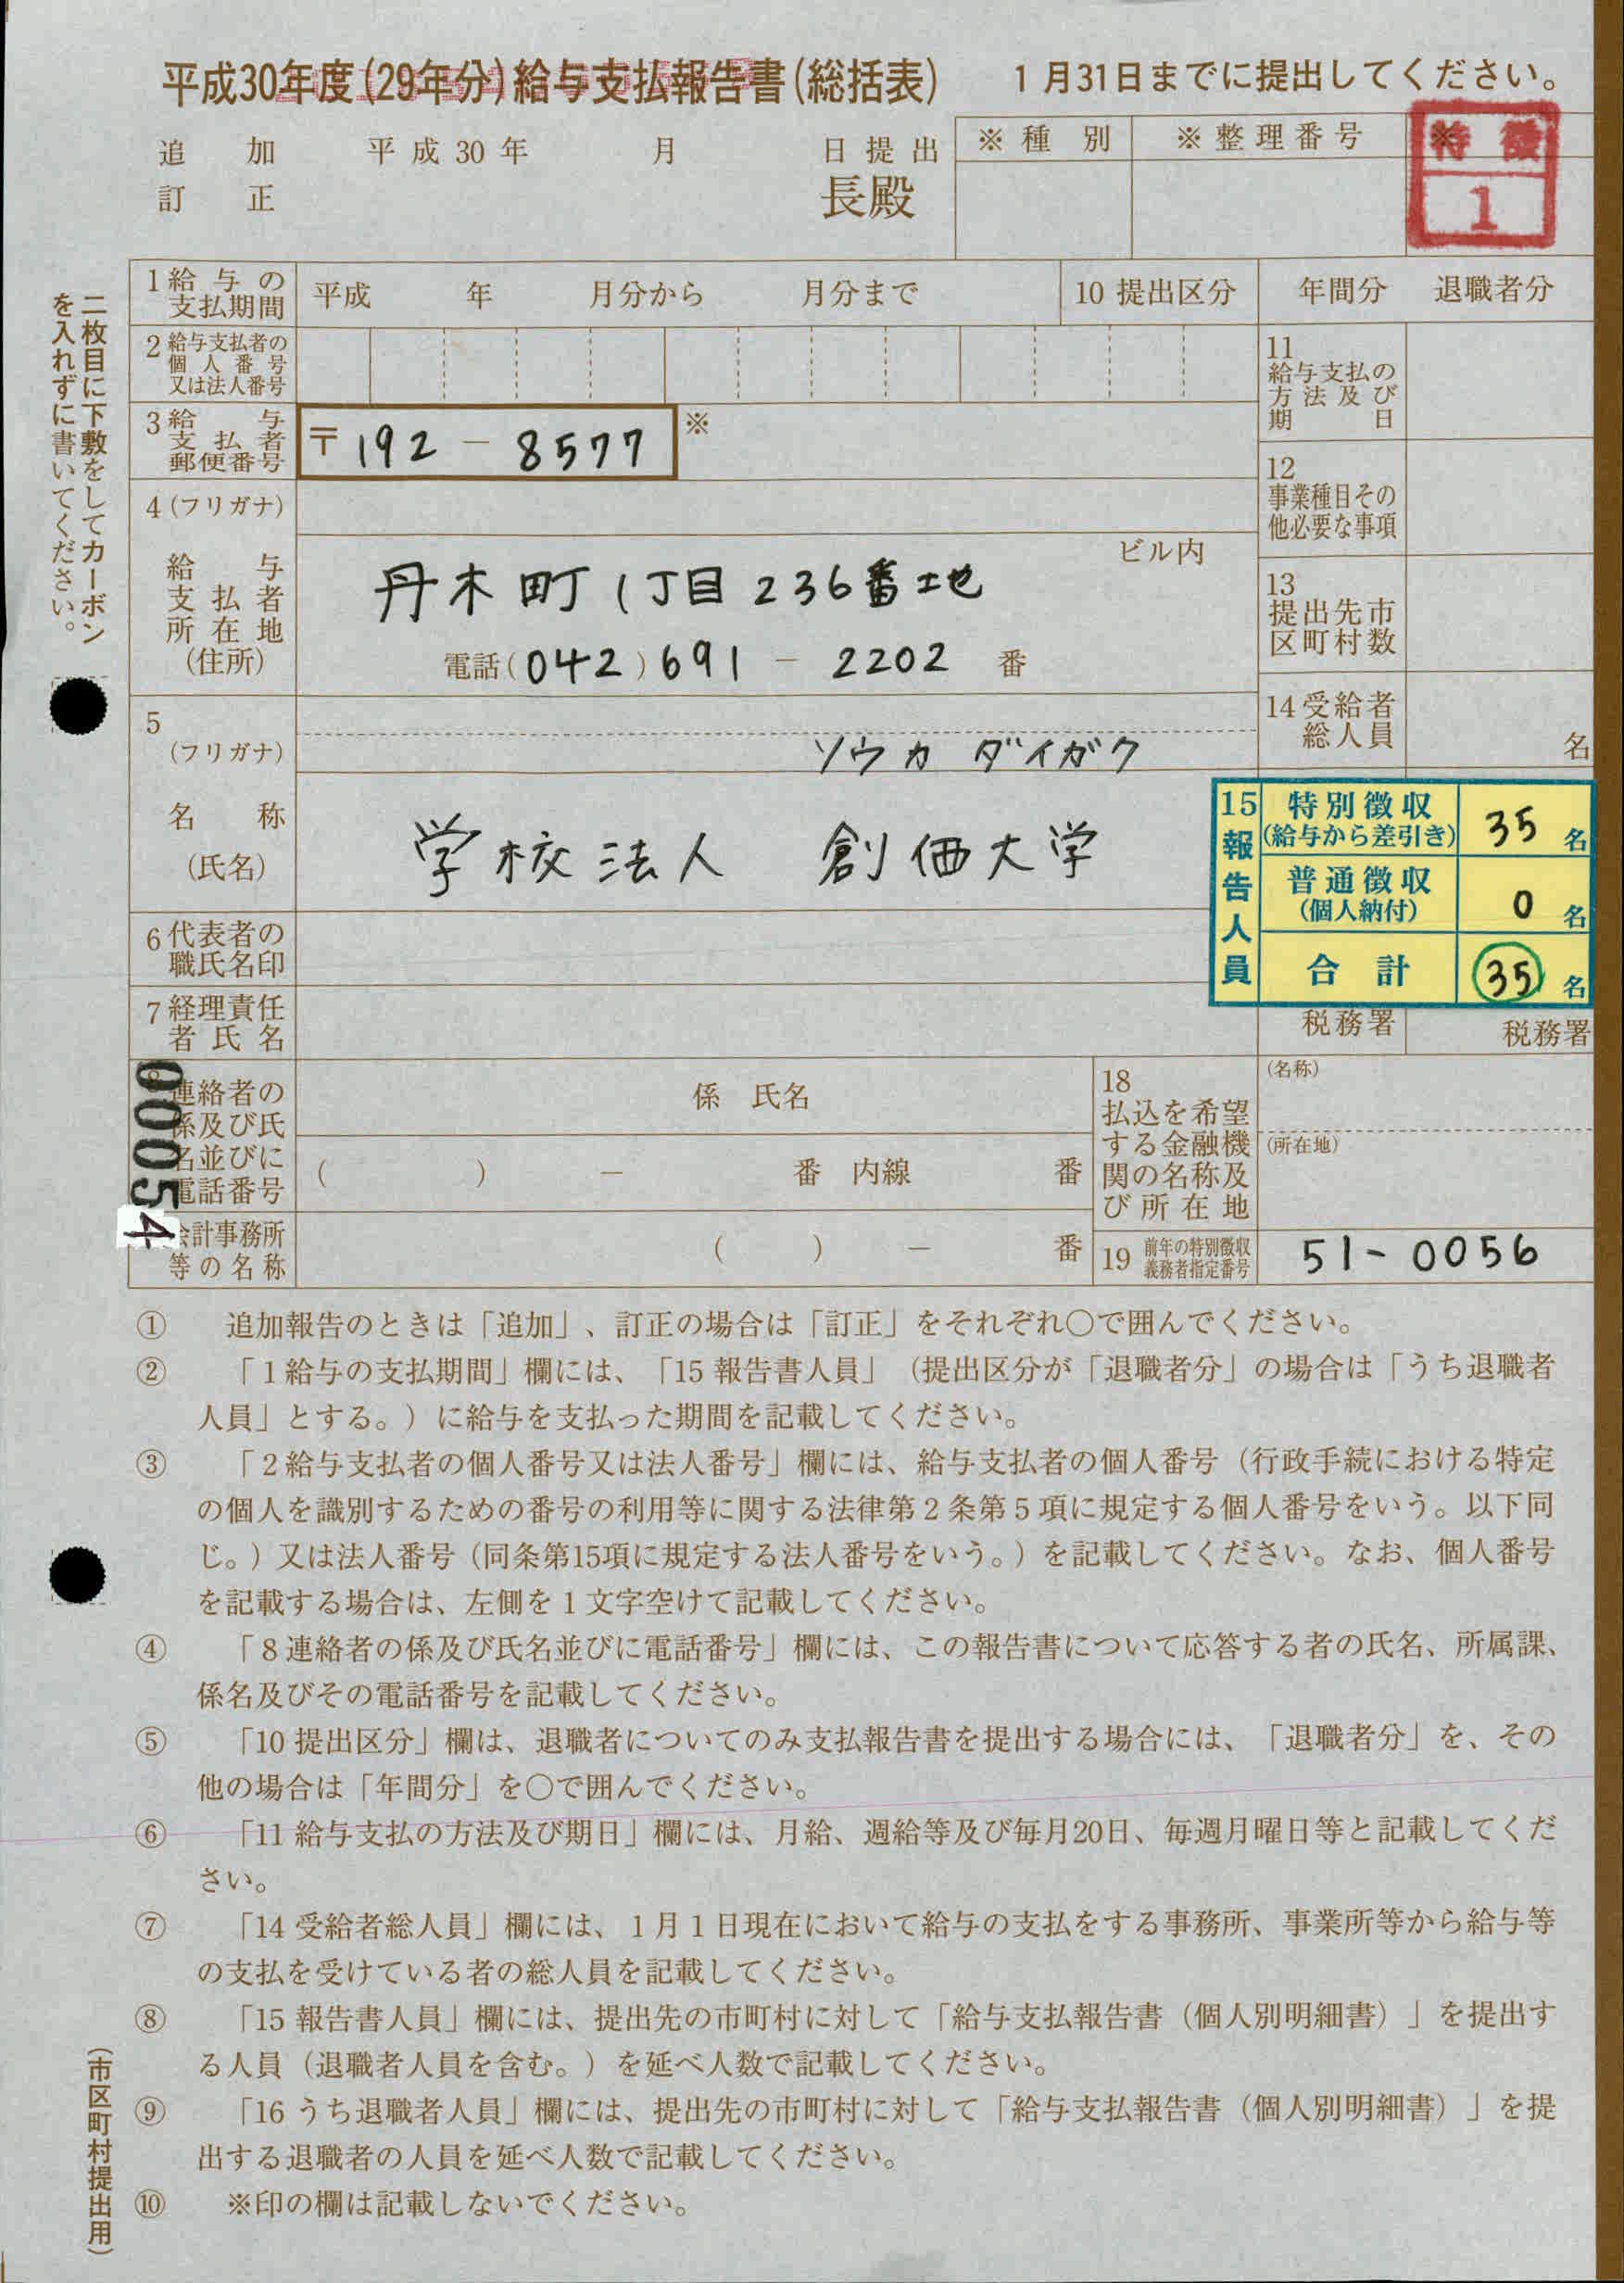 平成30年度(29年分)給与支払報告書(総括表)
1月31日までに提出してください。
追加 平成30年 月 日提出
訂正 長殿
※種別 ※整理番号 ※
特徴
1
二枚目に下敷をしてカーボン
を入れずに書いてください。
1 給与の支払期間 平成 年 月分から 月分まで
10 提出区分 年間分 退職者分
2 給与支払者の個人番号又は法人番号
11 給与支払の方法及び期日
3 給与支払者郵便番号 〒192-8577 ※
12 事業種目その他必要な事項
4 (フリガナ)
給与支払者所在地(住所)
ビル内
丹木町1丁目236番地
電話(042)691-2202番
13 提出先市区町村数
14 受給者総人員 名
5 (フリガナ) ソウカ ダイガク
名称(氏名) 学校法人 創価大学
15 報告人員
特別徴収(給与から差引き) 35名
普通徴収(個人納付) 0名
合計 35名
6 代表者の職氏名印
7 経理責任者氏名
税務署 税務署
00054
連絡者の係及び氏名並びに電話番号 係 氏名
( ) - 番 内線 番
18 払込を希望する金融機関の名称及び所在地
(名称)
(所在地)
会計事務所等の名称 ( ) - 番
19 前年の特別徴収義務者指定番号 51-0056
① 追加報告のときは「追加」、訂正の場合は「訂正」をそれぞれ○で囲んでください。
② 「1給与の支払期間」欄には、「15 報告書人員」(提出区分が「退職者分」の場合は「うち退職者
人員」とする。)に給与を支払った期間を記載してください。
③ 「2給与支払者の個人番号又は法人番号」欄には、給与支払者の個人番号(行政手続における特定
の個人を識別するための番号の利用等に関する法律第2条第5項に規定する個人番号をいう。以下同
じ。)又は法人番号(同条第15項に規定する法人番号をいう。)を記載してください。なお、個人番号
を記載する場合は、左側を1文字空けて記載してください。
④ 「8連絡者の係及び氏名並びに電話番号」欄には、この報告書について応答する者の氏名、所属課、
係名及びその電話番号を記載してください。
⑤ 「10 提出区分」欄は、退職者についてのみ支払報告書を提出する場合には、「退職者分」を、その
他の場合は「年間分」を○で囲んでください。
⑥ 「11 給与支払の方法及び期日」欄には、月給、週給等及び毎月20日、毎週月曜日等と記載してくだ
さい。
⑦ 「14 受給者総人員」欄には、1月1日現在において給与の支払をする事務所、事業所等から給与等
の支払を受けている者の総人員を記載してください。
⑧ 「15 報告書人員」欄には、提出先の市町村に対して「給与支払報告書(個人別明細書)」を提出す
る人員(退職者人員を含む。)を延べ人数で記載してください。
⑨ 「16 うち退職者人員」欄には、提出先の市町村に対して「給与支払報告書(個人別明細書)」を提
出する退職者の人員を延べ人数で記載してください。
⑩ ※印の欄は記載しないでください。
(市区町村提出用)